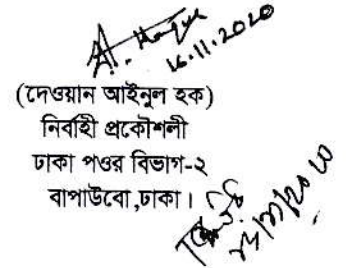 16.11.2020
(দেওয়ান আইনুল হক)
নির্বাহী প্রকৌশলী
ঢাকা পওর বিভাগ-২
বাপাউবো,ঢাকা।